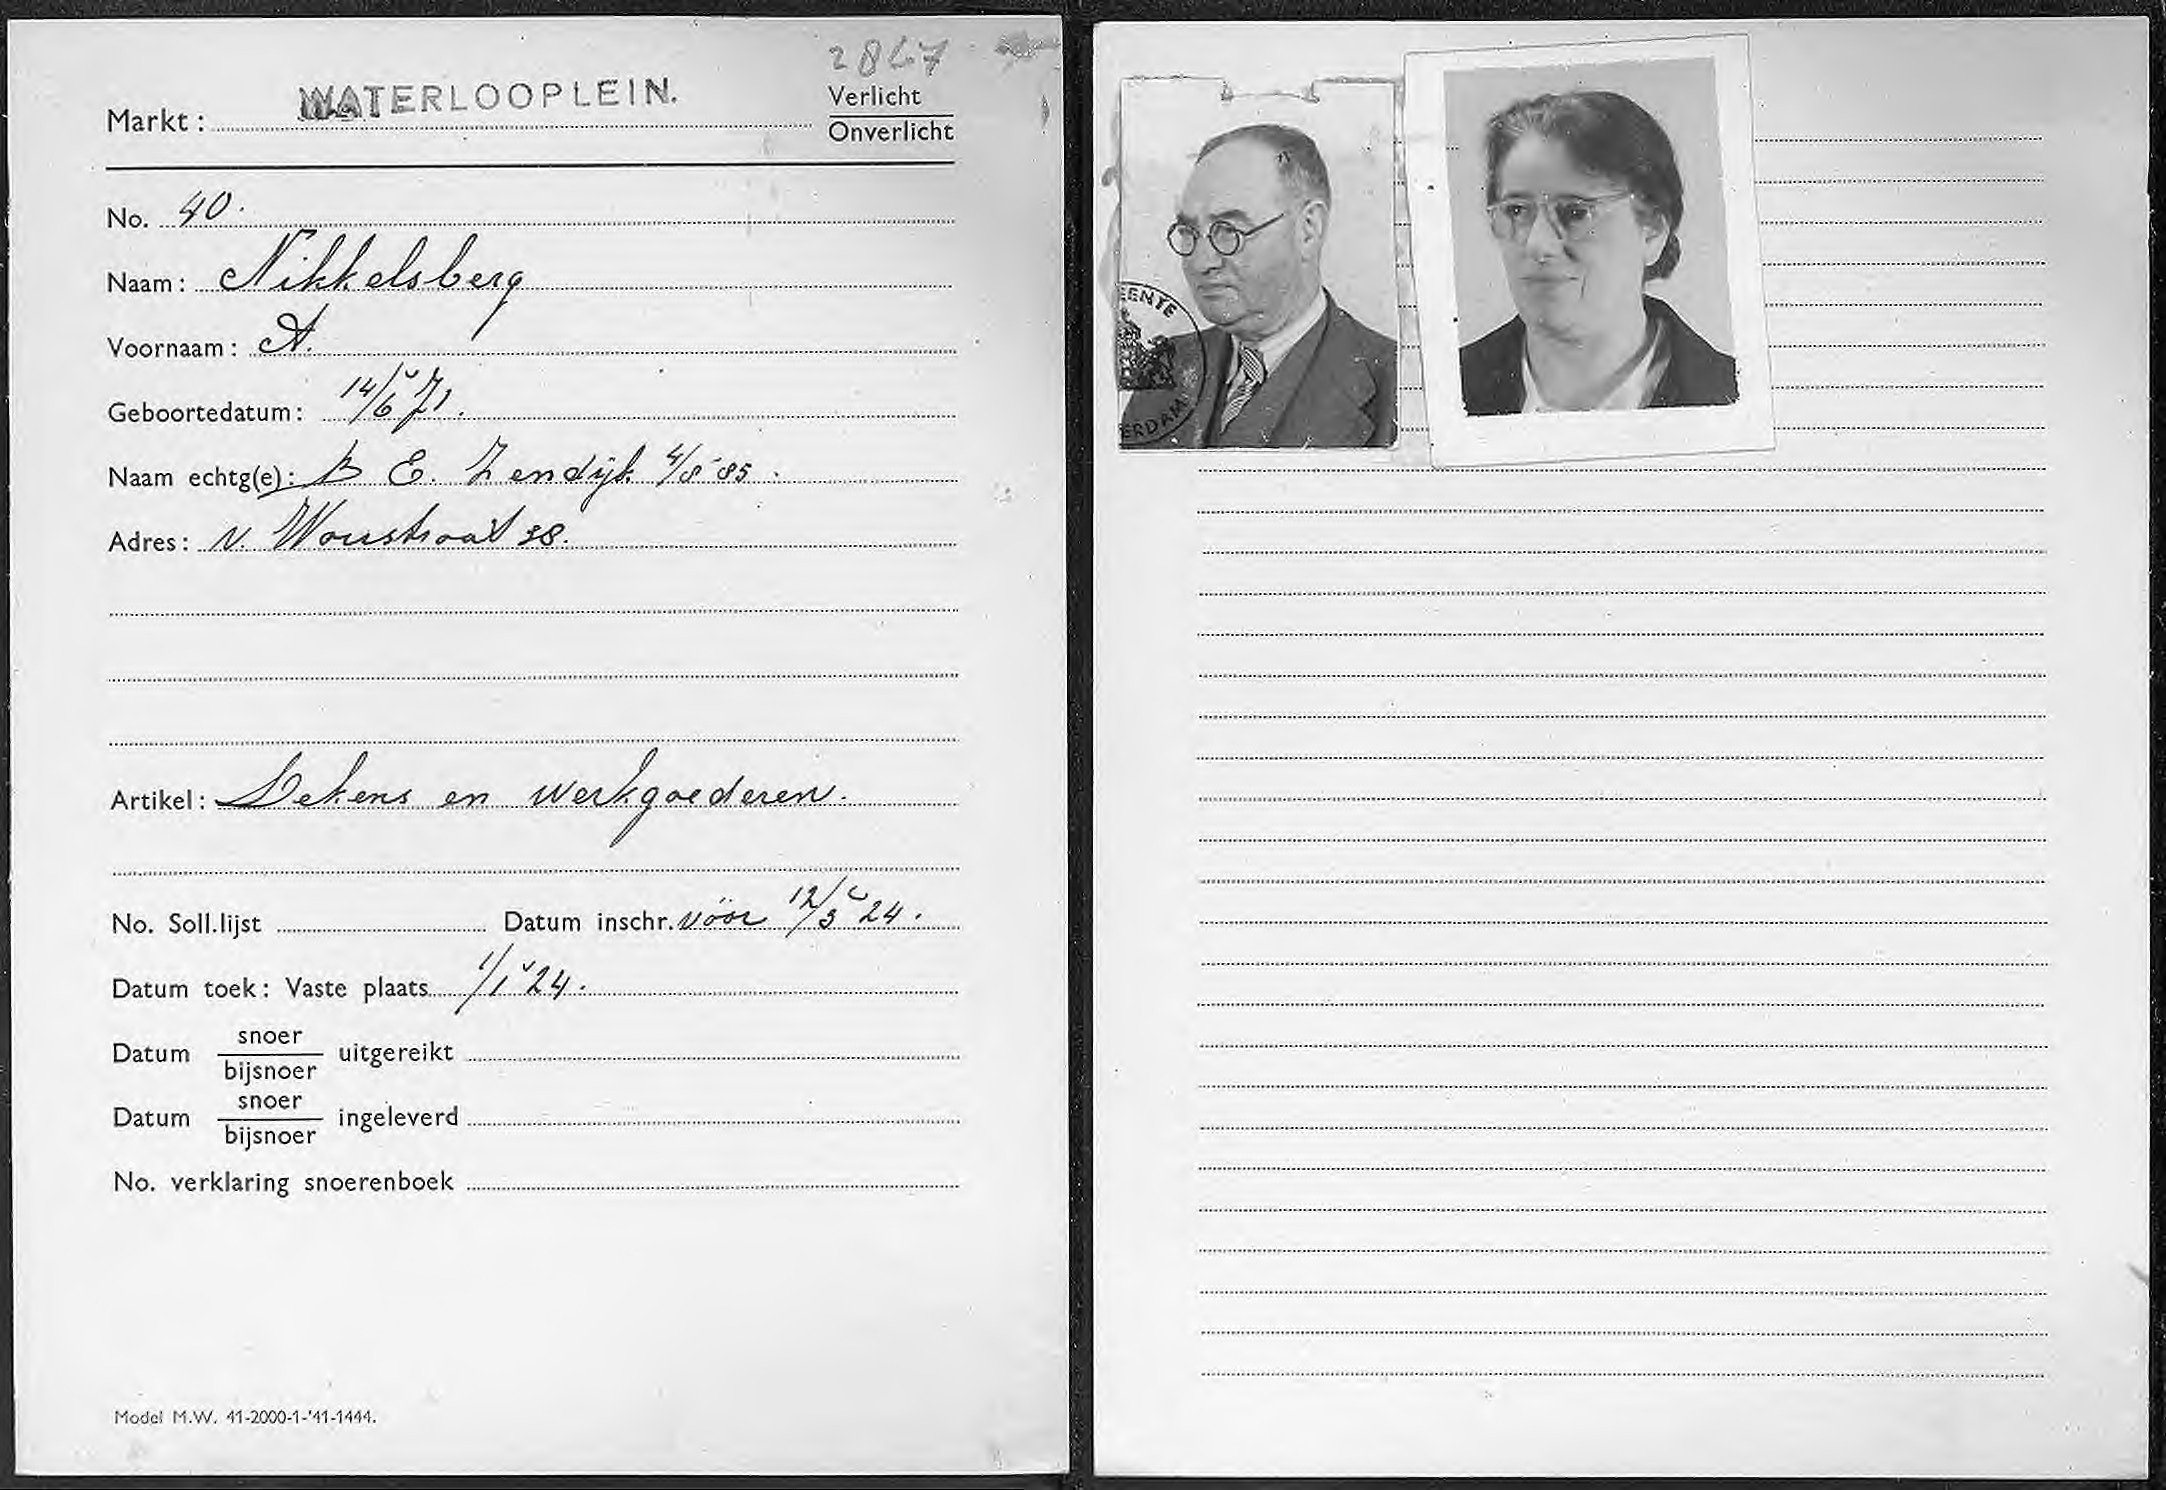 2867
Markt: WATERLOOPLEIN.
Verlicht
Onverlicht
No. 40.
Naam: Nikkelsberg
Voornaam: A.
Geboortedatum: 14/6 '71.
Naam echtg(e): B E. Zendijk 4/8 '85.
Adres: v. Woustraat 38.
Artikel: Dekens en werkgoederen.
No. Soll.lijst Datum inschr. vóór 12/3 '24.
Datum toek: Vaste plaats 1/1 '24.
Datum snoer/bijsnoer uitgereikt
Datum snoer/bijsnoer ingeleverd
No. verklaring snoerenboek
Model M.W. 41-2000-1-'41-1444.
EENTE
ERDAM